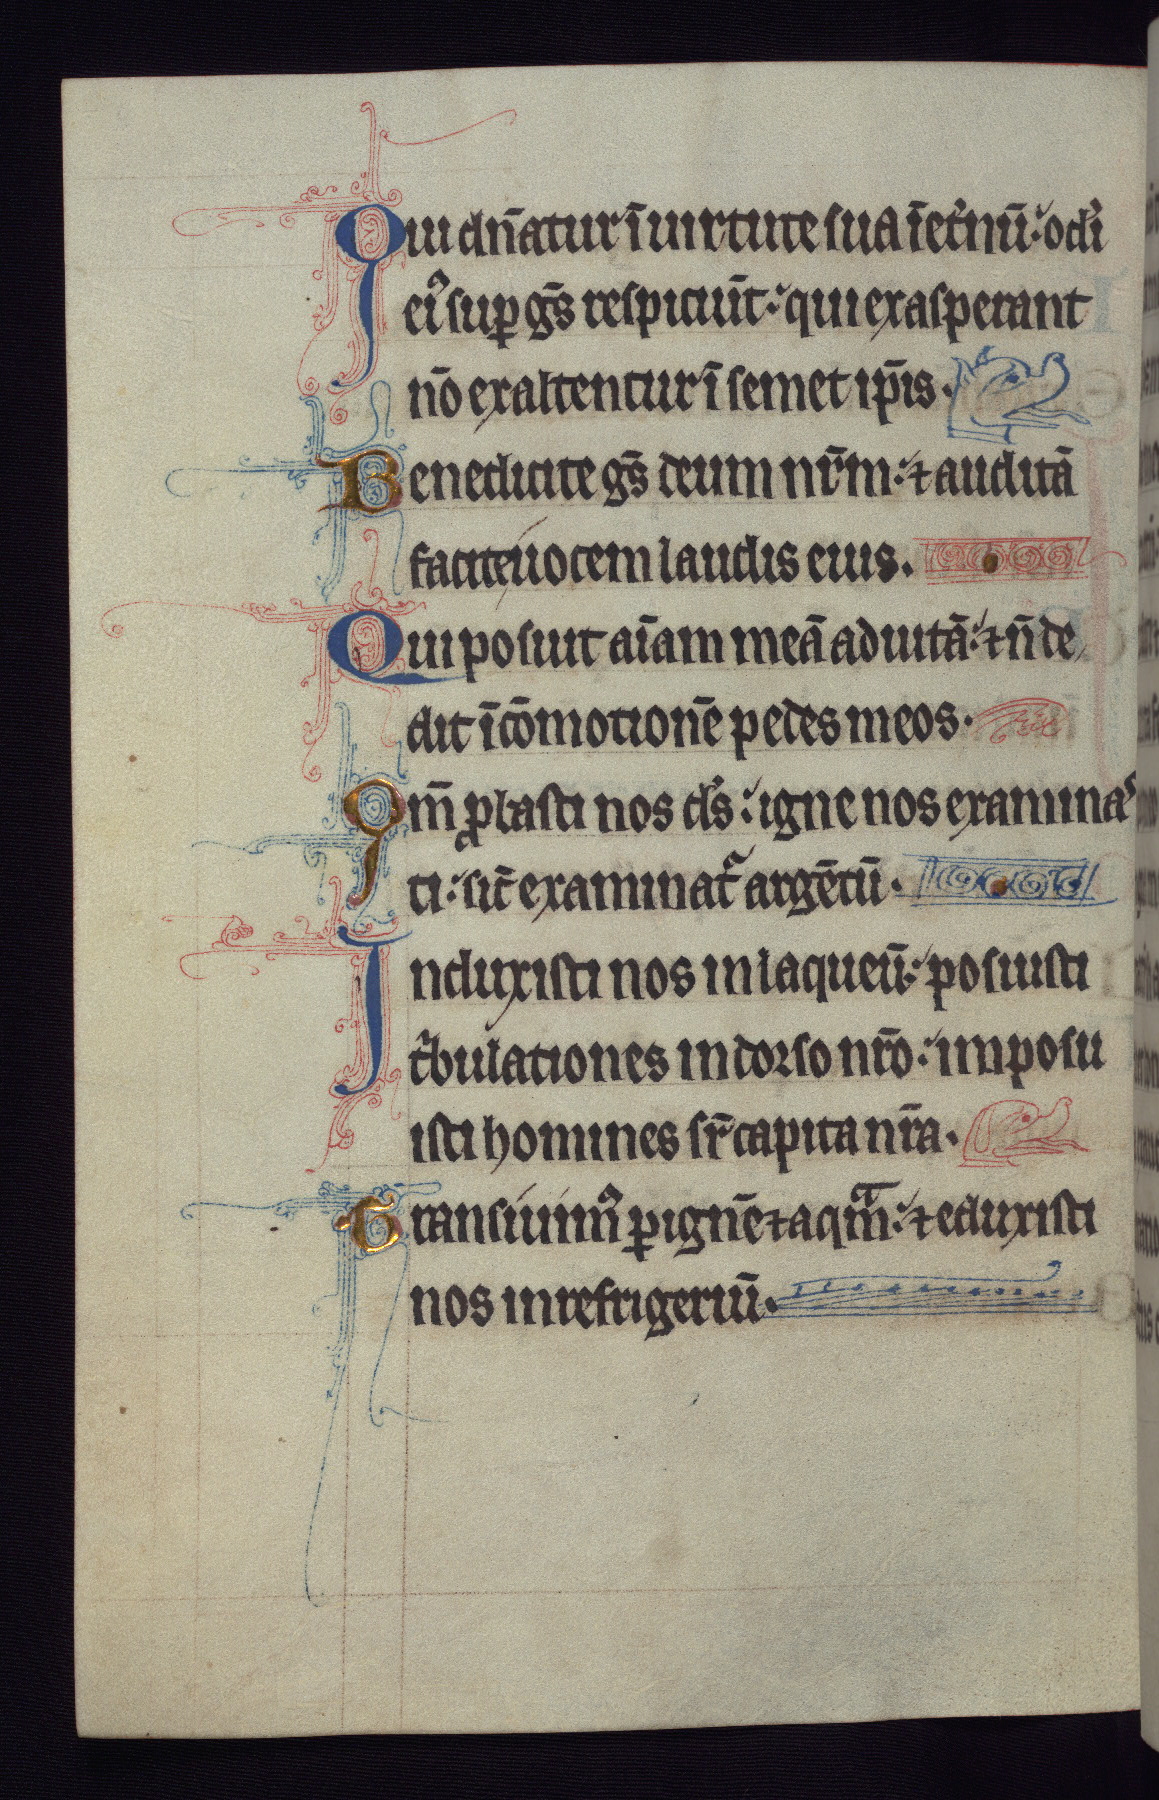 Qui dn̄atur ī uirtute sua ī et̾nū: ocl̾i
ei᷒ sup̱ gn̄s respiciūt: qui exasperant
nō exaltentur ī semet ip̄is.
Benedicite gn̄s deum nr̄m: ⁊ auditā
facite uocem laudis eius.
Qui posuit aīam meā ad uitā: ⁊ n̄ de
dit ī cōmotionē pedes meos.
Qm̄ ꝓbasti nos ds̾: igne nos examinas
ti: sic̄ examinat᷑ argētū.
Induxisti nos in laqueū: posuisti
tⁱbulationes in dorso nr̄o: imposu
isti homines sr̄ capita nr̄a.
Transiuim᷒ ꝑ ignē ⁊ aqᵃm: ⁊ eduxisti
nos in refrigeriū.